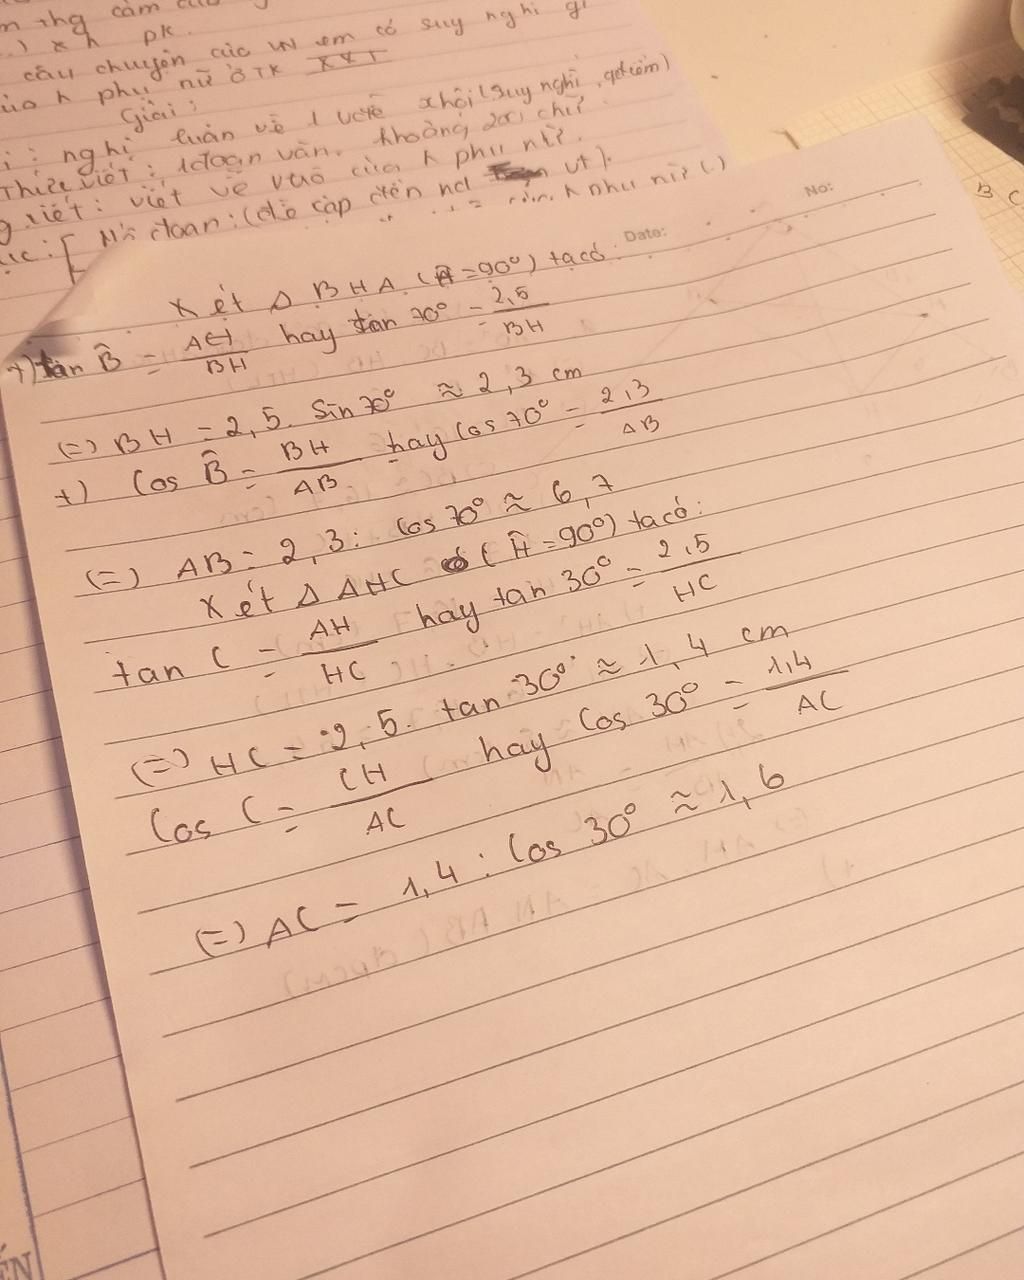 m thg cảm
) xh pk.
câu chuyện các VN em có suy nghĩ gì
của h phụ nữ ở TK XVI
Giải:
: nghị luận về 1 vđề xhội (suy nghĩ,
Thức viết: 1 đoạn văn. khoảng 200 chữ.
viết: viết về vđề của h phụ nữ.
Mở đoạn: (đề cập đến nd vt).
h như nữ ()
No:
Date:
B C
Xét Δ BHA (Ĥ = 90°) ta có
+) tan B̂ = AH/BH hay tan 70° = 2,5/BH
(=) BH = 2,5. Sin 70° ≈ 2,3 cm
+) Cos B̂ = BH/AB hay Cos 70° = 2,3/AB
(=) AB = 2,3 : Cos 70° ≈ 6,7
Xét Δ AHC (Ĥ = 90°) ta có:
tan C = AH/HC hay tan 30° = 2,5/HC
(=) HC = 2,5. tan 30° ≈ 1,4 cm
Cos C = CH/AC hay Cos 30° = 1,4/AC
(=) AC = 1,4 : Cos 30° ≈ 1,6
ẾN